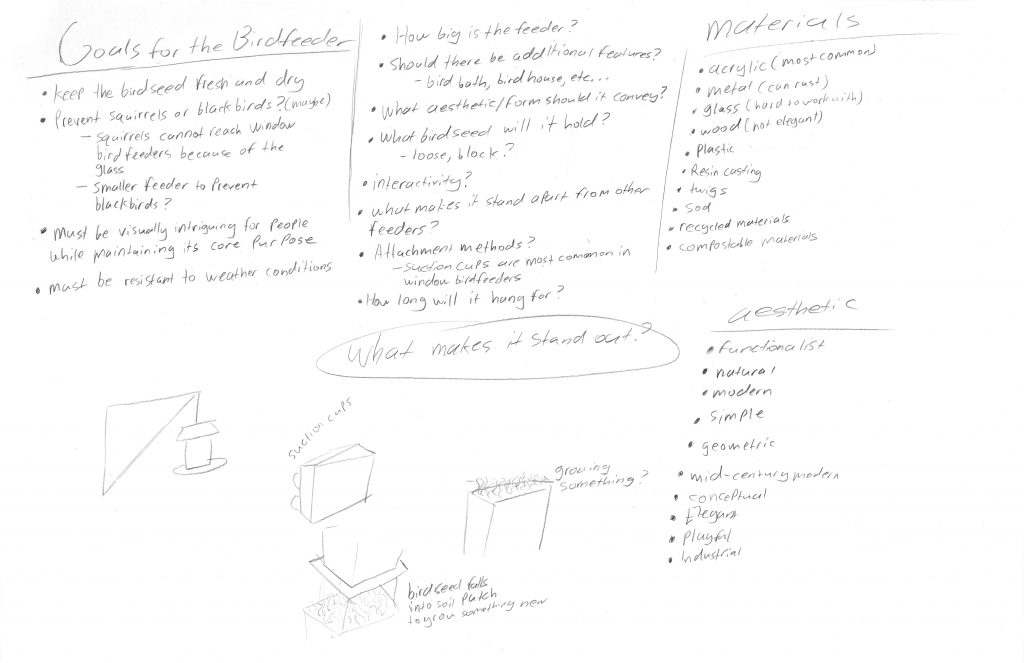 Goals for the Birdfeeder
• Keep the birdseed fresh and dry
• Prevent squirrels or blackbirds? (maybe)
– squirrels cannot reach window
bird feeders because of the
glass
– smaller feeder to prevent
blackbirds?
• must be visually intriguing for people
while maintaining its core purpose
• must be resistant to weather conditions
• How big is the feeder?
• Should there be additional features?
– bird bath, bird house, etc...
• What aesthetic/form should it convey?
• What birdseed will it hold?
– loose, block?
• interactivity?
• what makes it stand apart from other
feeders?
• Attachment methods?
– suction cups are most common in
window birdfeeders
• How long will it hung for?
materials
• acrylic (most common)
• metal (can rust)
• glass (hard to work with)
• wood (not elegant)
• Plastic
• Resin casting
• twigs
• sod
• recycled materials
• compostable materials
What makes it stand out?
aesthetic
• functionalist
• natural
• modern
• simple
• geometric
• mid-century modern
• conceptual
• Elegant
• Playful
• Industrial
suction cups
growing
something?
birdseed falls
into soil patch
to grow something new